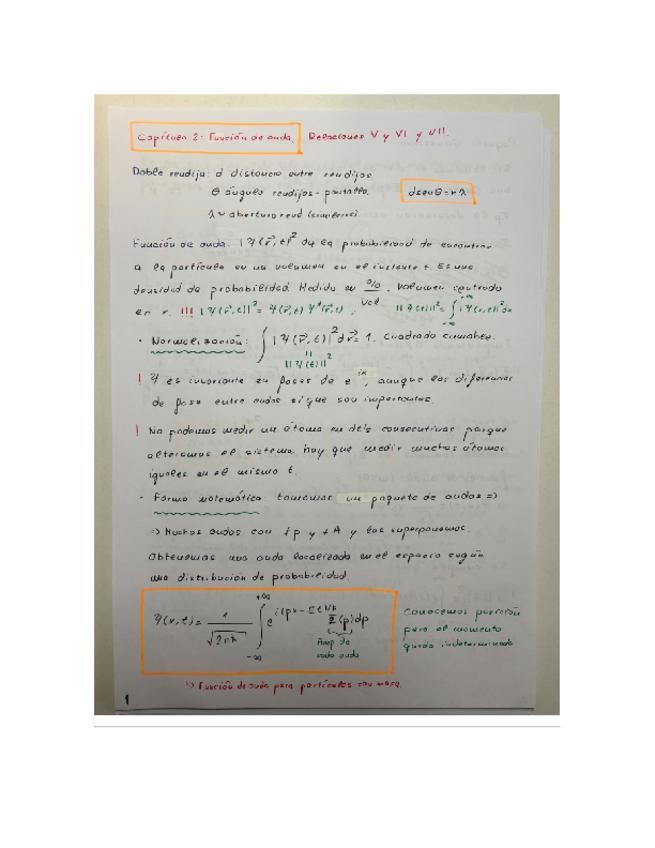 Capítulo 2: Función de onda. Relaciones V y VI y VII.
Doble rendija: d distancia entre rendijas
θ ángulo rendijas-pantalla. dsenθ=nλ
λ ~ abertura rend (similares).
Función de onda: |Ψ(r⃗,t)|² da la probabilidad de encontrar
a la partícula en un volumen en el instante t. Es una
densidad de probabilidad. Medida en %/vol. Volumen centrado
en r. !!! |Ψ(r⃗,t)|² = Ψ(r⃗,t) Ψ*(r⃗,t) , ||Ψ(t)||² = ∫_{-∞}^{+∞} |Ψ(x,t)|² dx
· Normalización: ∫ |Ψ(r⃗,t)|² dr⃗ = 1. Cuadrado sumable.
||
||Ψ(t)||²
! Ψ es invariante en fases de e^{iα}, aunque las diferencias
de fase entre ondas sí que son importantes.
! No podemos medir un átomo en dt's consecutivos porque
alteramos el sistema, hay que medir muchos átomos
iguales en el mismo t.
· Forma matemática tomamos un paquete de ondas =>
=> Muchas ondas con ≠p y ≠A y las superponemos.
Obtenemos una onda localizada en el espacio según
una distribución de probabilidad.
Ψ(x,t) = 1/√(2πħ) ∫_{-∞}^{+∞} e^{i(px-Et)/ħ} (p)dp
Amp de
cada onda
Conocemos posición
pero el momento
queda indeterminado
↳ Función de onda para partículas con masa.
1